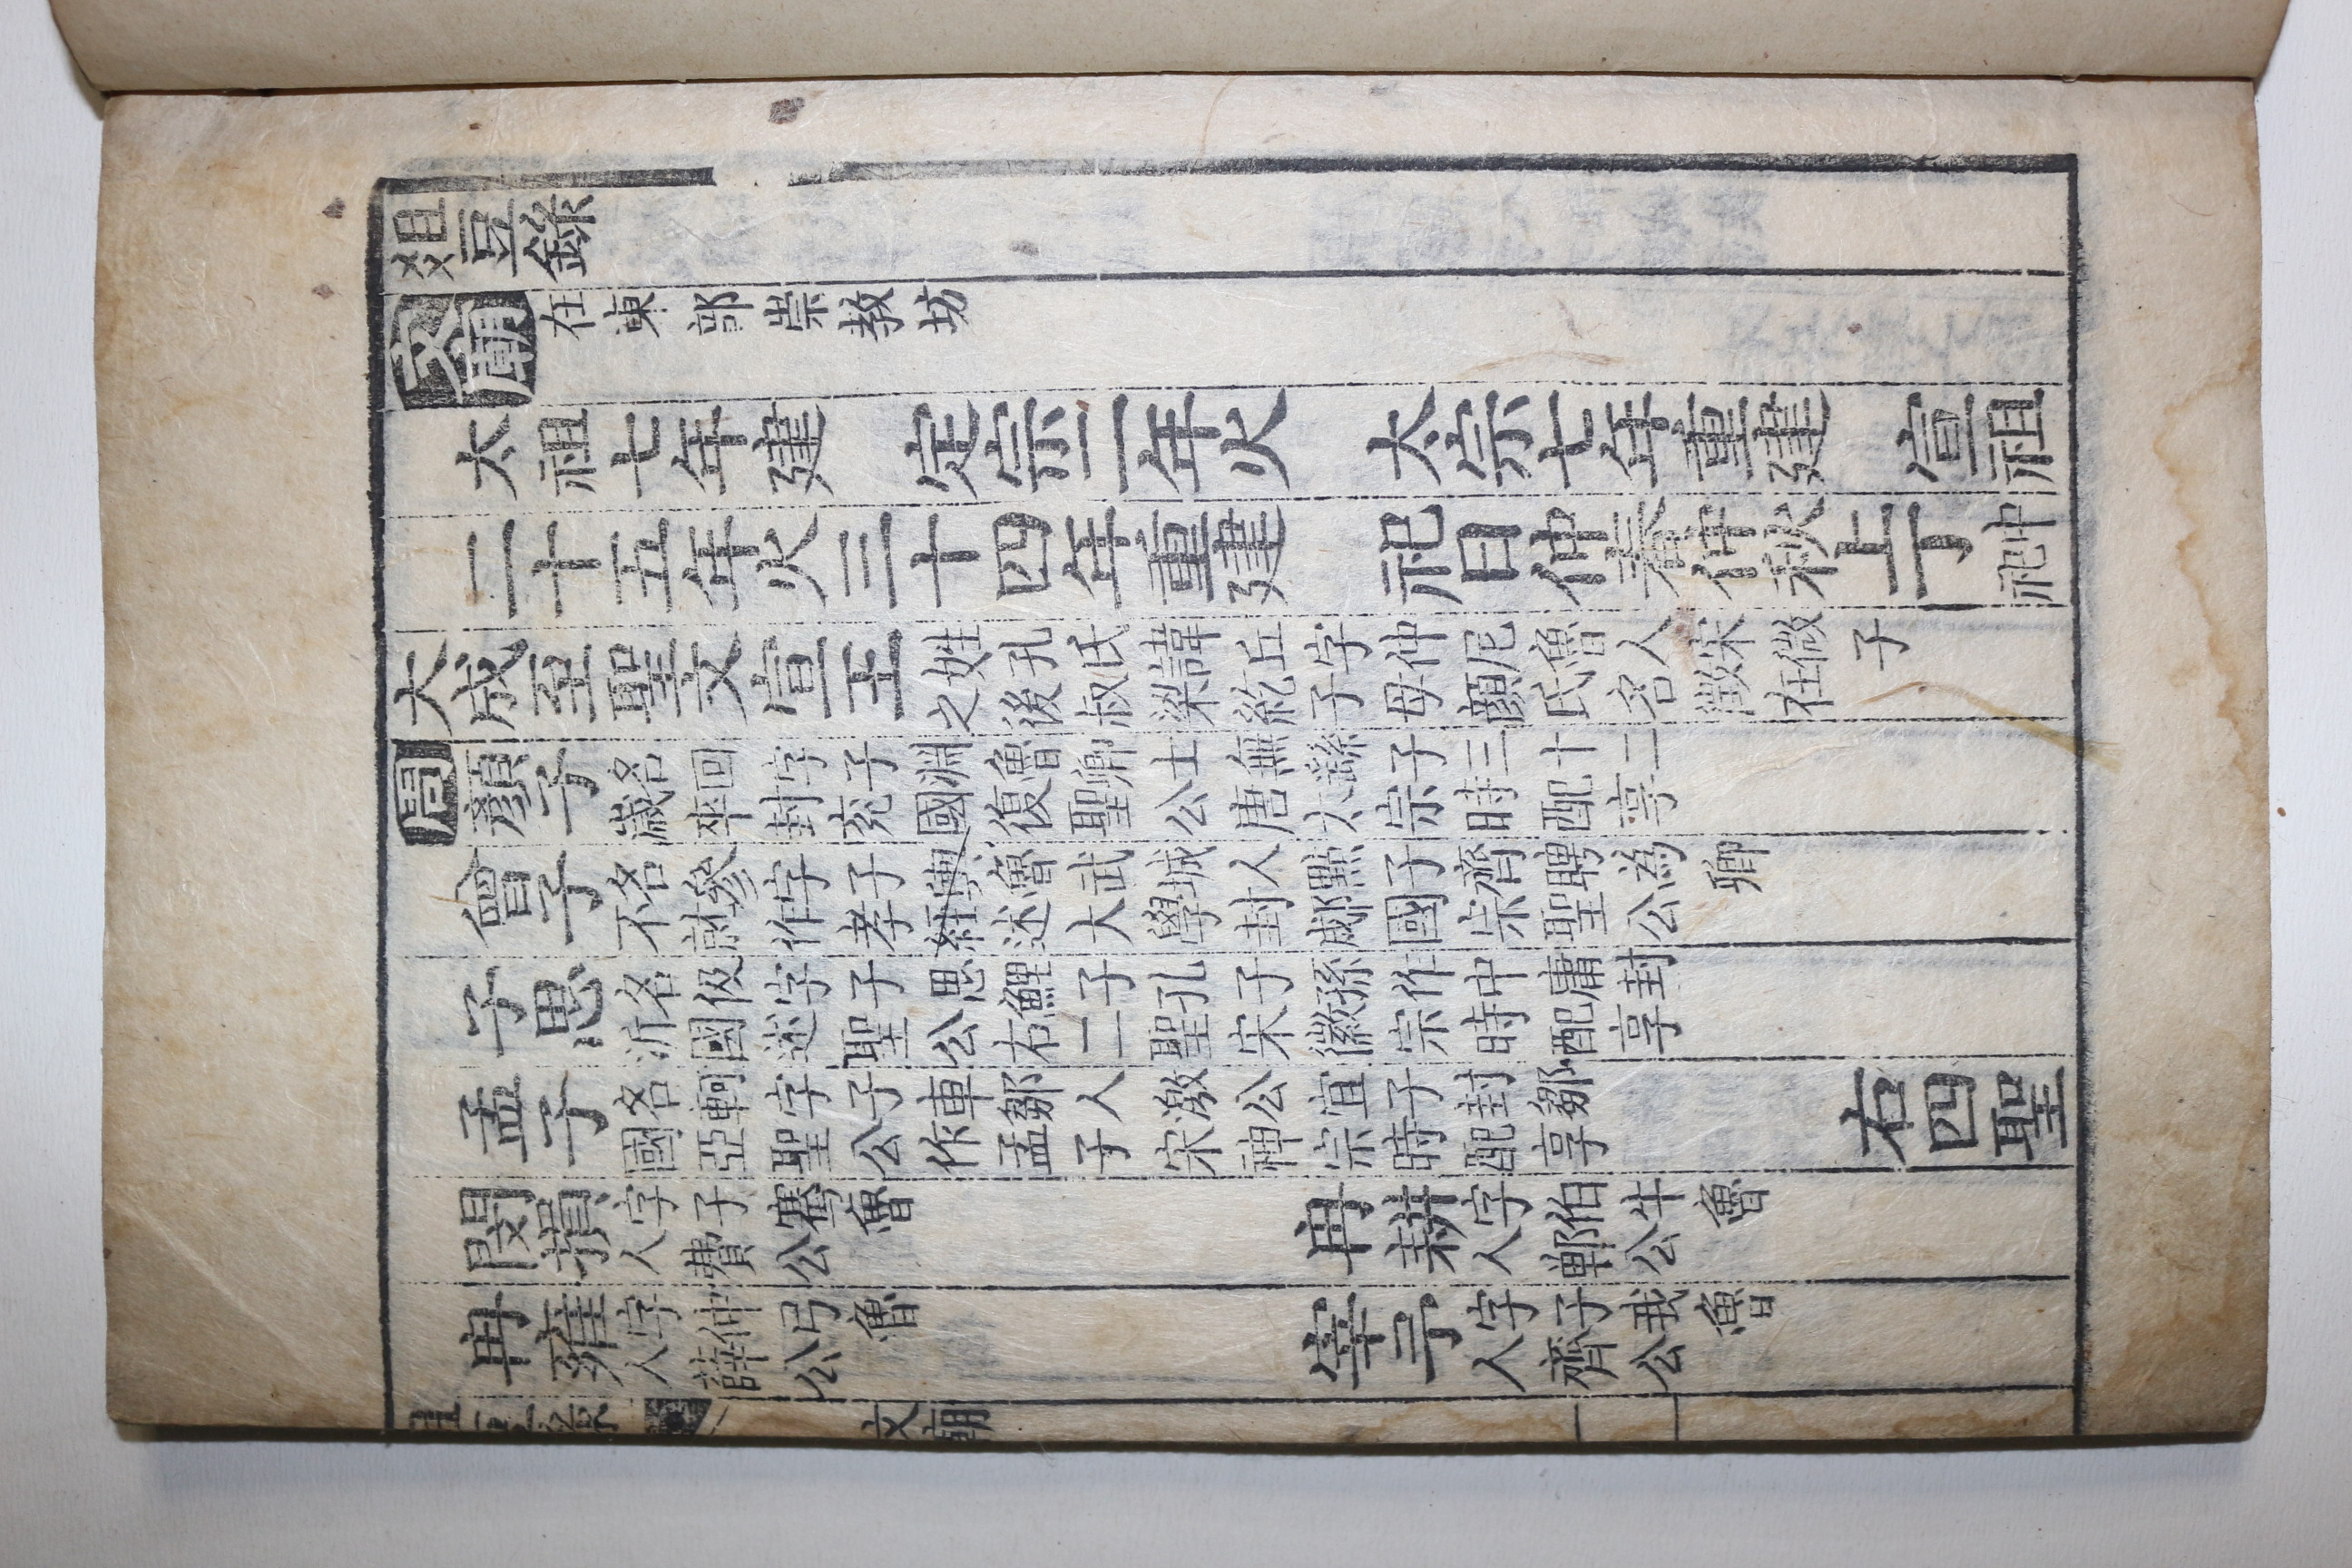 爼豆錄
文廟 在東部崇敎坊
太祖七年建 定宗二年火 太宗七年重建 宣祖
二十五年火三十四年重建 祀日仲春仲秋上丁 中祀
大成至聖文宣王 姓孔氏諱丘字仲尼魯人宋微子之後叔梁紇子母顔氏名徵在
周 顏子 名回字子淵魯卿士無繇子三十二歲卒封兗國復聖公唐太宗時配享
曾子 名參字子輿魯武城人點子齊聘為卿不就作孝經述大學封郕國宗聖公
子思 名伋字子思鯉子孔子孫作中庸封沂國述聖公右二聖宋徽宗時配享
孟子 名軻字子車鄒人激公宜子封鄒國亞聖公作孟子宋神宗時配享 右四聖
閔損 字子騫魯人費公 冉耕 字伯牛魯人鄆公
冉雍 字仲弓魯人薛公 宰予 字子我魯人齊公
文廟 一